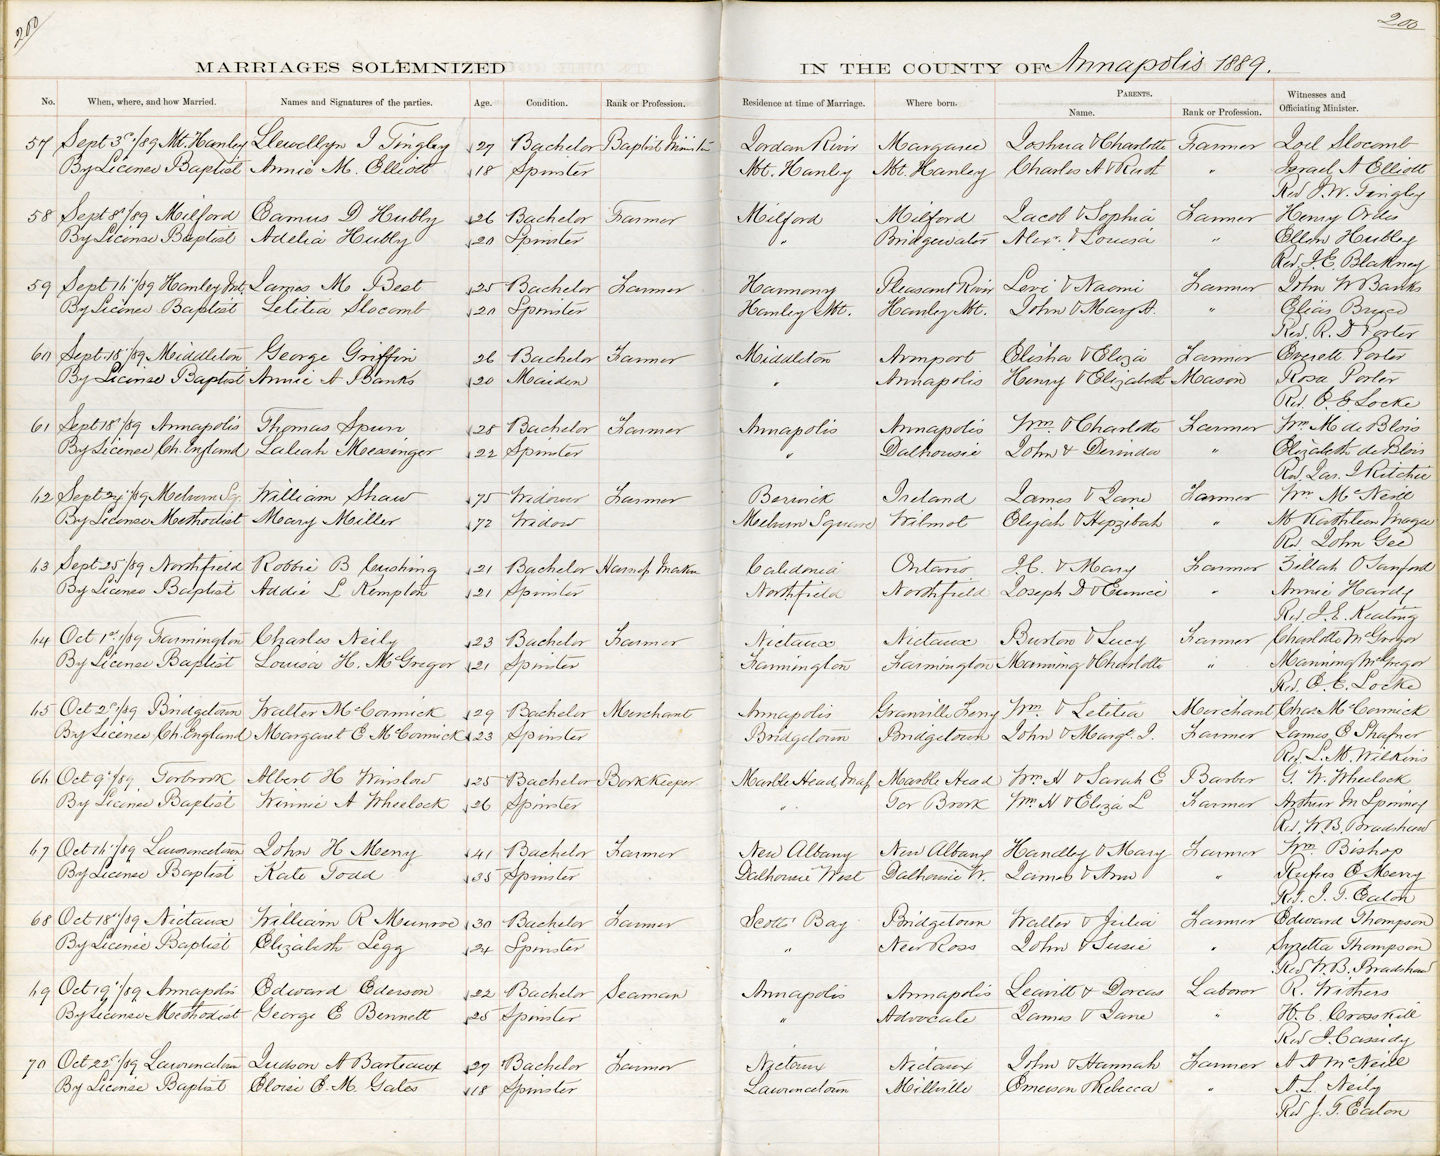 200
200
MARRIAGES SOLEMNIZED IN THE COUNTY OF Annapolis 1889.
No. When, where, and how Married. Names and Signatures of the parties. Age. Condition. Rank or Profession. Residence at time of Marriage. Where born. PARENTS. Name. Rank or Profession. Witnesses and Officiating Minister.
57 Sept 3rd/89 Mt. Hanley Llewellyn J Tingley 27 Bachelor Baptist Minister Jordan River Margaree Joshua & Charlotte Farmer Joel Slocomb
By License Baptist Annie M. Elliott 18 Spinster Mt. Hanley Mt. Hanley Charles A & Ruth " Israel A Elliott
Rev J. W. Tingley
58 Sept 8th/89 Milford Camus D Hubly 26 Bachelor Farmer Milford Milford Jacob & Sophia Farmer Henry Ordes
By License Baptist Adelia Hubly 20 Spinster " Bridgewater Alex. & Louisa " Ellen Hubley
Rev. J. E. Blakney
59 Sept 16/89 Hanley Mt. James M Best 25 Bachelor Farmer Harmony Pleasant River Levi & Naomi Farmer John W Banks
By License Baptist Letitia Slocomb 20 Spinster Hanley Mt. Hanley Mt. John & Mary A. " Elias Bruce
Rev. R. D Porter
60 Sept. 18/89 Middleton George Griffin 26 Bachelor Farmer Middleton Elisha & Eliza Farmer Everett Porter
By License Baptist Annie A Banks 20 Maiden " Annapolis Henry & Elizabeth Mason Rosa Porter
Rev. O. E Locke
61 Sept 18th/89 Annapolis Thomas Spurr 28 Bachelor Farmer Annapolis Annapolis Wm & Charlotte Farmer Wm M de Blois
By License Ch. England Laleah Messinger 22 Spinster " Dalhousie John & Dorinda " Elizabeth de Blois
Rev Jas. J Ritchie
62 Sept 24/89 Melvern Sq. William Shaw 75 Widower Farmer Berwick Ireland James & Jane Farmer Wm McNeill
By License Methodist Mary Miller 72 Widow Melvern Square Wilmot Elijah & Hepzibah " M Kathleen Magee
Rev John Gee
63 Sept 25/89 Northfield Robbie B Cushing 21 Bachelor Harness Maker Caledonia Ontario J. C. & Mary Farmer Zillah O Sanford
By License Baptist Addie L Kempton 21 Spinster Northfield Northfield Joseph D & Eunice " Annie Hardy
Rev J. E. Keating
64 Oct 1st/89 Farmington Charles Neily 23 Bachelor Farmer Nictaux Nictaux Burton & Lucy Farmer Charlotte McGregor
By License Baptist Louisa H. McGregor 21 Spinster Farmington Farmington Manning & Charlotte " Manning McGregor
Rev. O. E. Locke
65 Oct 2nd/89 Bridgetown Walter McCormick 29 Bachelor Merchant Annapolis Granville Ferry Wm & Letitia Merchant Chas McCormick
By License Ch. England Margaret E McCormick 23 Spinster Bridgetown Bridgetown John & Margt. J. Farmer James E Shafner
Rev. L. M. Wilkins
66 Oct 9th/89 Torbrook Albert H Winslow 25 Bachelor Book Keeper Marble Head, Mass Marble Head Wm H & Sarah E Barber G. W. Wheelock
By License Baptist Winnie A Wheelock 26 Spinster " Tor Brook Wm H & Eliza L Farmer Arthur M Spinney
Rev. W. B. Bradshaw
67 Oct 16/89 Lawrencetown John H Merry 41 Bachelor Farmer New Albany New Albany Handley & Mary Farmer Wm. Bishop
By License Baptist Kate Todd 35 Spinster Dalhousie West Dalhousie W. James & Ann " Rufus E Merry
Rev. J. T. Eaton
68 Oct 18th/89 Nictaux William R Munroe 30 Bachelor Farmer Scotts Bay Bridgetown Walter & Julia Farmer Edward Thompson
By License Baptist Elizabeth Legg 24 Spinster " New Ross John & Susie " Syretta Thompson
Rev W. B. Bradshaw
69 Oct 19th/89 Annapolis Edward Ederson 22 Bachelor Seaman Annapolis Annapolis Leavitt & Dorcas Laborer R. Withers
By License Methodist George E Bennett 25 Spinster " Advocate James & Jane " H. C. Crosskill
Rev J. Cassidy
70 Oct 22nd/89 Lawrencetown Judson A Barteaux 27 Bachelor Farmer Nictaux Nictaux John & Hannah Farmer A A McNeill
By License Baptist Eloise E. M. Gates 18 Spinster Lawrencetown Millville Emerson & Rebecca " A. L. Neily
Rev J. T. Eaton